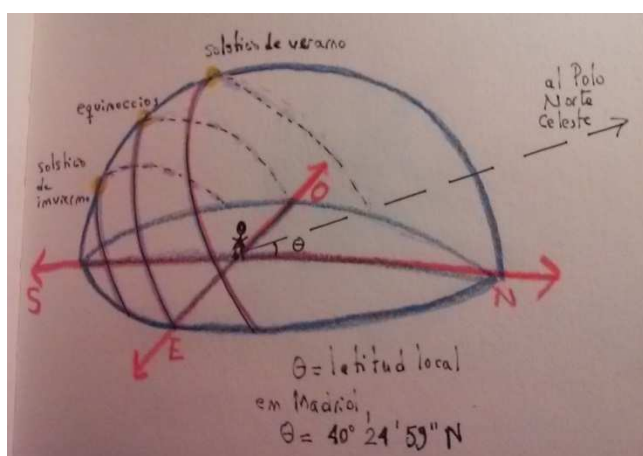 solsticio de verano
equinoccios
solsticio
de
invierno
al Polo
Norte
Celeste
O
θ
S
N
E
θ = latitud local
en Madrid,
θ = 40° 24' 59" N